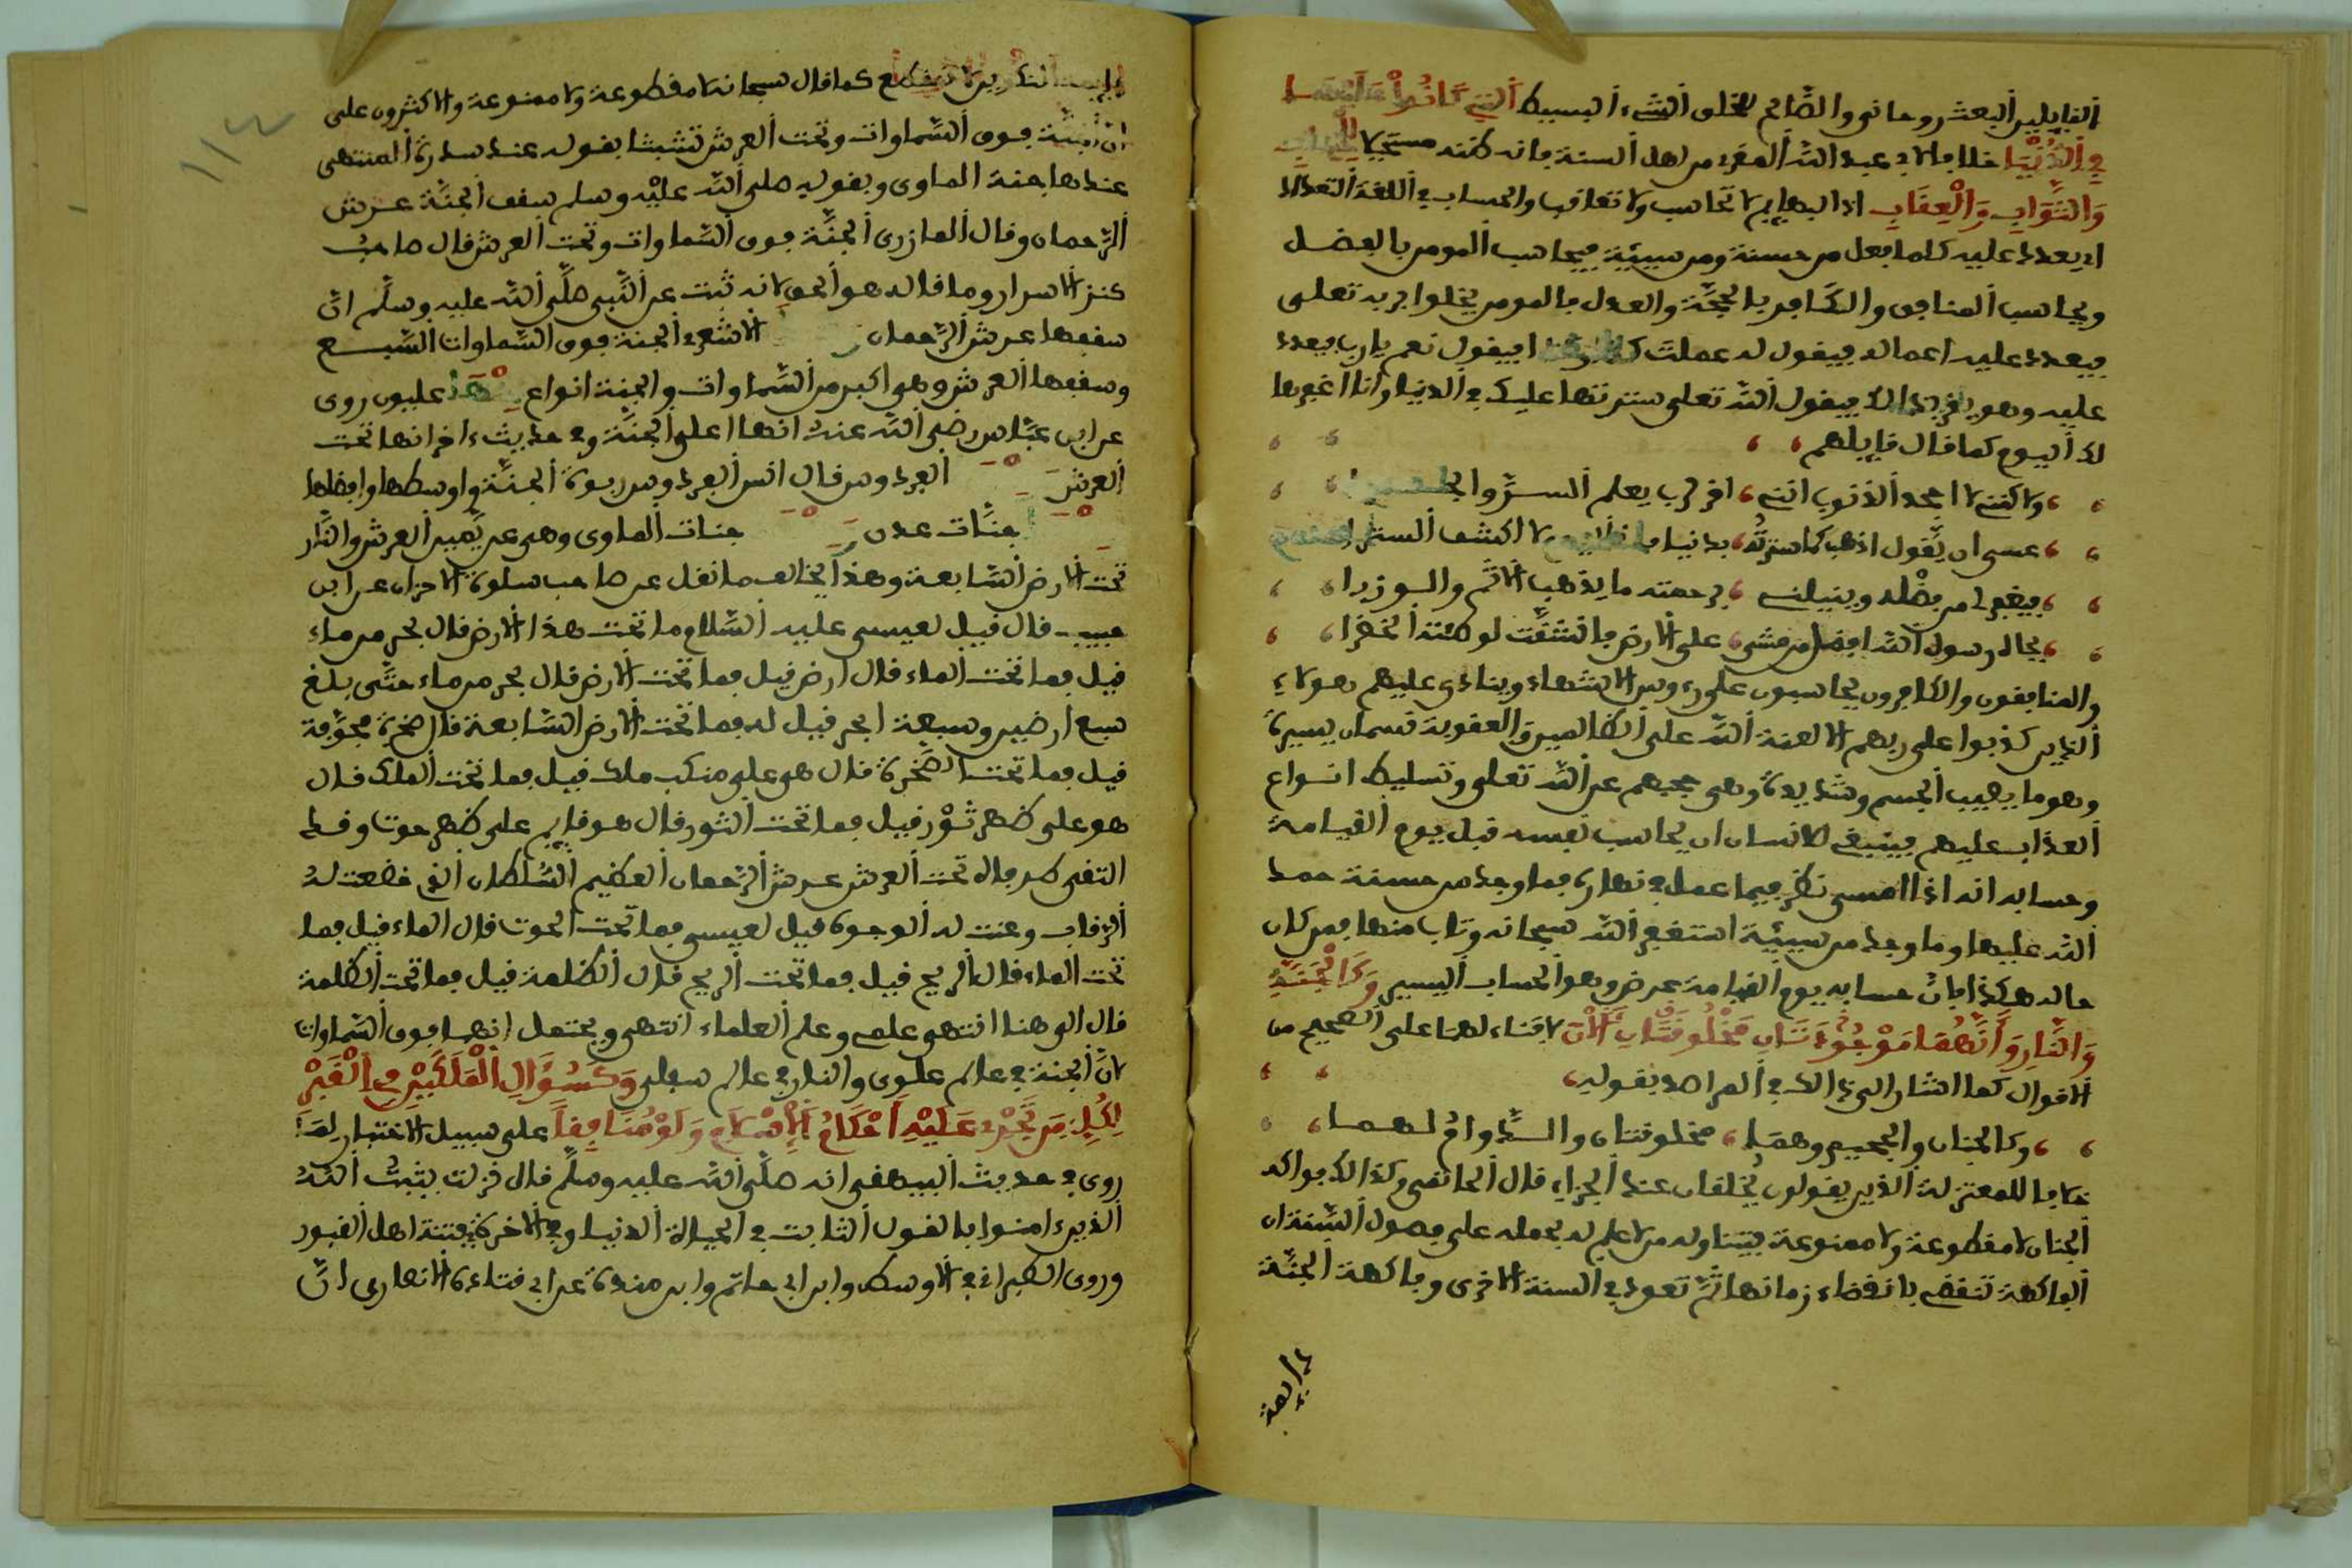 القايلين البعث روحاني والضّامر للخلى الشيء البسيط التي كانوا عليها
في الدُّنْيَا خلافا لابي عبد الله المقرء من اهل السنة فانه ظنه مستحيلا للحساب
وَالثَّوَابِ وَالْعِقَابِ اذ البهايم لا تحاسب ولا تعاقب والحساب في اللغة التعداد
اي يعدد عليه كلما فعل من حسنة ومن سيئة فيحاسب المومن بالفضل
ويحاسب المنافق والكافر بالحجّة والعدل فالمومن يخلوا به ربه تعلى
فيعدد عليه اعماله فيقول له عملت كذا وكذا فيقول نعم يا رب فيعدد
عليه وهو يقر بذالك فيقول الله تعلى سترتها عليك في الدنيا وانا اغفرها
لك اليوم كما قال قايلهم
ولاكنني لا اجحد الذنوب انني اقر لرب يعلم السرّ والجهرا
عسى ان يَّقول اذهب كما سترته بدنيا لا اكشف الستر
فيغفر لي من فضله وينيلني برحمته ما يذهب الاثم والوزرا
بجاه رسول الله افضل من مشى على الارض فانشقّت لوطئته الخضرا
والمنافقون والكافرون يحاسبون على رءوس الاشهاد وينادى عليهم هولاء
الذين كذبوا على ربهم الا لعنة الله على الظالمين والعقوبة قسمان يسيرة
وهو ما يصيب الجسم وشديدة وهي حجبهم عن الله تعلى وتسليط انواع
العذاب عليهم فينبغي للانسان ان يحاسب نفسه قبل يوم القيامة
وحسابه انه اذا امسى نظر فيما عمل في نهاره فما وجد من حسنة حمد
الله عليها وما وجد من سيئة استغفر الله سبحانه وتاب منها فمن كان
حاله هكذا فانّ حسابه يوم القيامة عرض وهو الحساب اليسير وَكَالْجَنَّةِ
وَالنَّارِ وَأَنَّهُمَا مَوْجُودَتَانِ مَخْلُوقَتَانِ الْآنَ لا فناء لهما على الصحيح من
الاقوال كما اشار الى ذالك في المراصد بقوله
وكالجنان والجحيم وهما مخلوقتان والدّوام لهما
خلافا للمعتزلة الذين يقولون يُخلقان عند الجزاء قال الحانفي وكذالك فواكه
الجنان لا مقطوعة ولا ممنوعة فيتناوله من لا علم له بحمله على فصول السّنة ان
الفاكهة تنقضي بانقضاء زمانها ثمّ تعود في السنة الاخرى وفاكهة الجنّة
دايمة
دايمة التكوين لا تنقطع كما قال سبحانه لا مقطوعة ولا ممنوعة والاكثرون على
ان الجنّة فوق السّماوات وتحت العرش تشبثا بقوله عند سدرة المنتهى
عندها جنة الماوى وبقوله صلى الله عليه وسلم سقف الجنّة عرش
الرّحمان وقال المازري الجنّة فوق السّماوات وتحت العرش قال صاحب
كنز الاسرار وما قاله هو الحق لانه ثبت عن النّبي صلّى الله عليه وسلّم انّ
سقفها عرش الرّحمان الاشعري الجنة فوق السّماوات السّبع
وسقفها العرش وهي اكبر من السّماوات والجنة انواع عليون روى
عن ابن عبّاس رضي الله عنه انها اعلى الجنّة وفي حديث اخر انها تحت
العرش الفردوس قال انس الفردوس ربوة الجنّة واوسطها وافضلها
جنّات عدن جنات الماوى وهي عن يّمين العرش والنّار
تحت الارض السّابعة وهذا يخالف ما نقل عن صاحب سلوة الاحزان عن ابن
حبيب قال قيل لعيسى عليه السّلام ما تحت هذا الارض قال بحر من ماء
قيل فما تحت الماء قال ارض قيل فما تحت الارض قال بحر من ماء حتّى بلغ
سبع ارضين وسبعة ابحر قيل له فما تحت الارض السّابعة قال صخرة مجوّفة
قيل فما تحت الصّخرة قال هي على منكب ملك قيل فما تحت الملك قال
هو على ظهر ثَوْر قيل فما تحت الثور قال هو قايم على ظهر حوت وقد
التقى طرفاه تحت العرش عرش الرّحمان العظيم السّلطان الذي خضعت له
الرّقاب وعنت له الوجوه قيل لعيسى فما تحت الحوت قال الماء قيل فما
تحت الماء قال الريح قيل فما تحت الريح قال الظلمة قيل فما تحت الظلمة
قال الى هنا انتهى علمي وعلم العلماء انتهى ويحتمل انها فوق السّماوات
لانّ الجنة في عالم علوي والنار في عالم سفلي وَكَسُؤَالِ الْمَلَكَيْنِ فِي الْقَبْرِ
لِكُلِّ مَن تَجْرِي عَلَيْهِ أَحْكَامُ الْإِسْلَامِ وَلَوْ مُنَافِقاً على سبيل الاختبار لِمَا
روي في حديث البيهقي انه صلّى الله عليه وسلّم قال نزلت يثبّتُ الله
الذين ءامنوا بالقول الثابت في الحياة الدنيا وفي الاخرة في فتنة اهل القبور
وروى الطبراني في الاوسط وابن ابي حاتم وابن مندة عن ابي قتادة الانصاري انّ